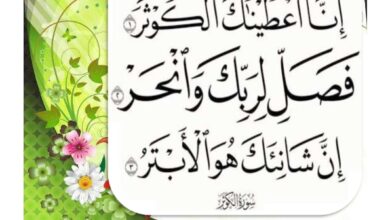 إِنَّا أَعْطَيْنَٰكَ ٱلْكَوْثَرَ ١
فَصَلِّ لِرَبِّكَ وَٱنْحَرْ ٢
إِنَّ شَانِئَكَ هُوَ ٱلْأَبْتَرُ ٣
سُورَةُ الكَوْثَر